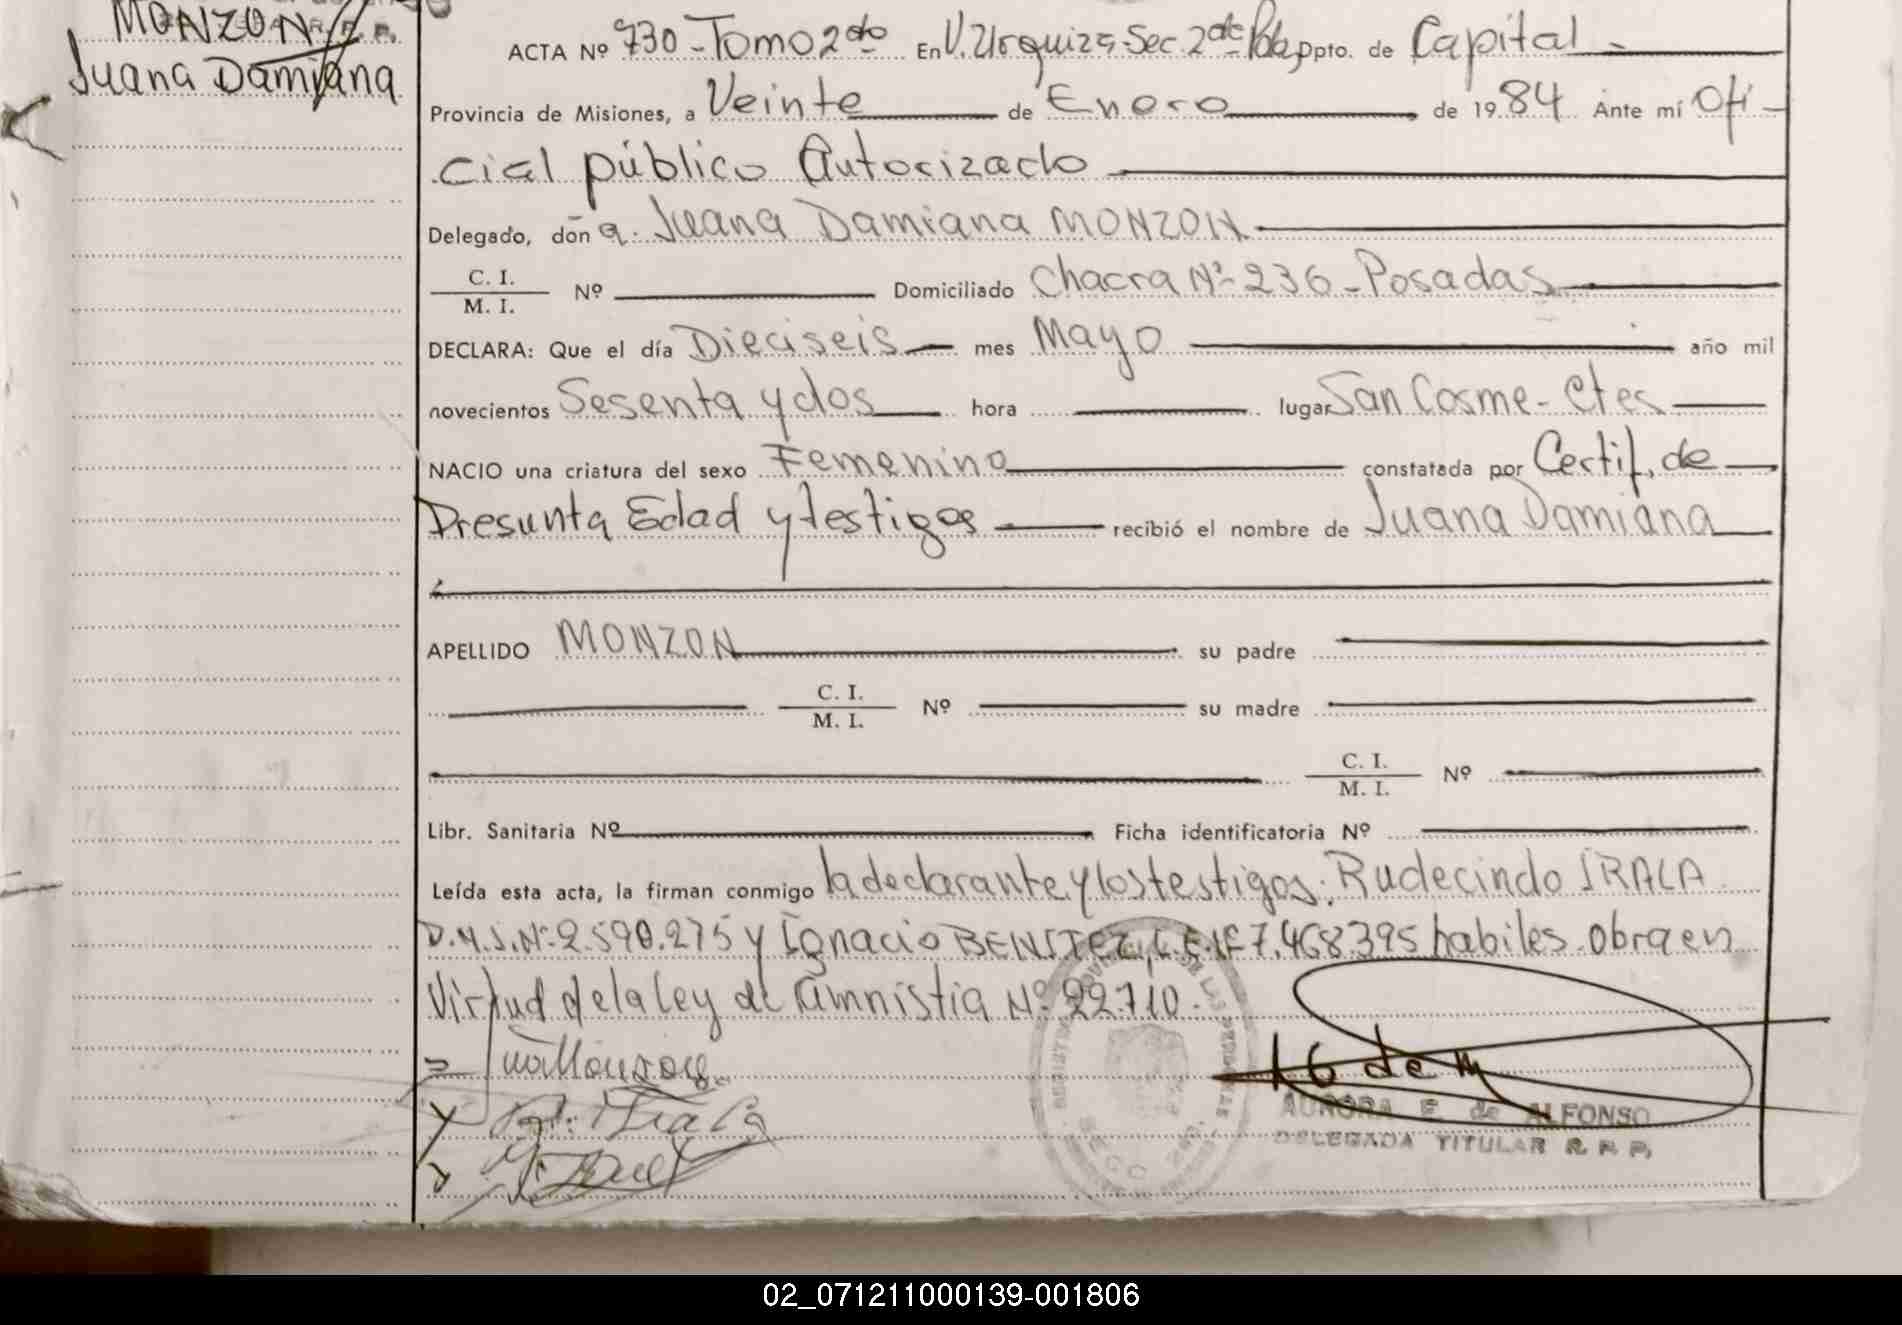 MONZON
Juana Damiana
ACTA Nº 730 - Tomo 2do En V. Urquiza, Sec. 2da Pdas Dpto. de Capital
Provincia de Misiones, a Veinte de Enero de 1984 Ante mí Ofi-
cial público Autorizado
Delegado, don a. Juana Damiana MONZON
C. I.
M. I. Nº Domiciliado Chacra Nº 236 - Posadas
DECLARA: Que el día Dieciseis mes Mayo año mil
novecientos Sesenta y dos hora lugar San Cosme - Ctes
NACIO una criatura del sexo Femenino constatada por Certif. de
Presunta Edad y testigos recibió el nombre de Juana Damiana
APELLIDO MONZON su padre
C. I.
M. I. Nº su madre
C. I.
M. I. Nº
Libr. Sanitaria Nº Ficha identificatoria Nº
Leída esta acta, la firman conmigo la declarante y los testigos: Rudecindo IRALA
Nº 2.590.275 y Ignacio BENITEZ, L.E. Nº 7.468.395 habiles. obra en
Virtud de la ley de amnistia Nº 22.710.
AURORA E. de ALFONSO
DELEGADA TITULAR R. P. P.
02_071211000139-001806